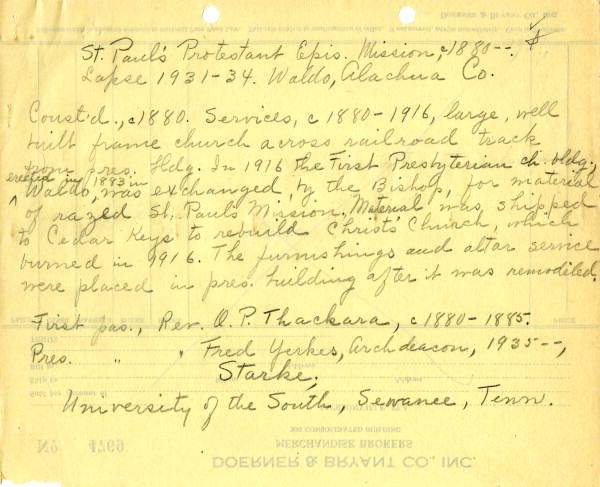 St. Paul's Protestant Epis. Mission, c1880--.
Lapse 1931-34. Waldo, Alachua Co.
Const'd., c1880. Services, c 1880-1916, large, well
built frame church across railroad track
from pres. bldg. In 1916 the First Presbyterian ch. bldg.,
erected in 1883 in
Waldo, was exchanged, by the Bishop, for material
of razed St. Paul's Mission. Material was shipped
to Cedar Keys to rebuild Christ's Church, which
burned in 1916. The furnishings and altar service
were placed in pres. building after it was remodeled.
First pas., Rev. O. P. Thackara, c1880-1885.
Pres. " " Fred Yerkes, Archdeacon, 1935--,
Starke;
University of the South, Sewanee, Tenn.
No 4769
300 CONSOLIDATED BUILDING
MERCHANDISE BROKERS
DOERNER & BRYANT CO., INC.